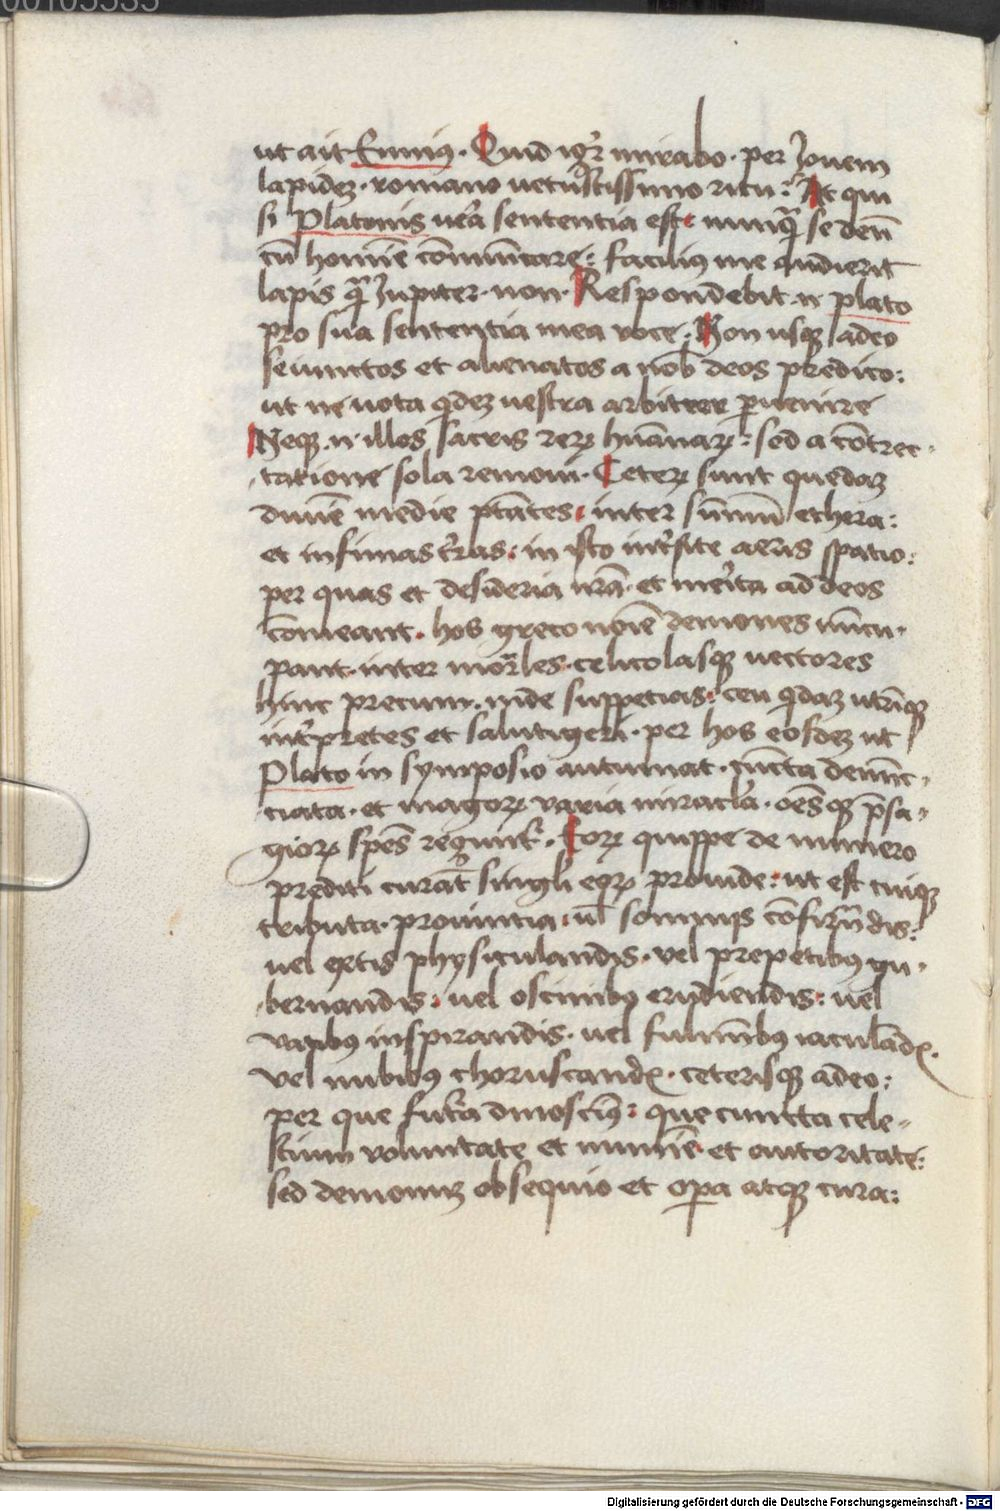 00105535
ut ait Ennius. Quid igr̄ mirabo. per Iouem
lapidez. romano uetustissimo ritu: At qui
si Platonis uēa sententia est: nunq̄ȝ se deū
cū homīe cōmunicare: facilius me audierit
lapis q̄ȝ Iupiter. non. Respondebit .n. plato
pro sua sententia mea uoce: Non usqȝ adeo
seiunctos et alienatos a nob̄ deos predico:
ut ne uota qdez uestra arbitrer ꝑuenire
Neqȝ .n. illos sacris reꝝ hūanaꝝ: sed a cōtrec-
tatione sola remoui. Ceteꝝ sunt quedaz
diuīe medie ptātes: inter sūmū ethera:
et infimas t̄ras: in isto int̄site aeris spatio:
per quas et desideria nr̄a. et merita ad deos
comeant. hos greco noīe demones nūcu-
pant. inter mor̄les. celicolasqȝ uectores
hinc precum. inde suppetias: ceu qdaz utriqȝ
int̄pretes et salutigeri. per hos eosdez ut
Plato in symposio autumat. cuncta denūc-
tiata. et magoꝝ varia miracl̄a. oēsqȝ p̄sa-
gioꝝ sp̄es regunt̄. Eoꝝ quippe de numero
prediti curāt singl̄i eoꝝ proinde: ut est cuiqȝ
tributa. prouintia: ul̄ somnijs cōfirmādis:
uel extis physiculandis. vel prepetibus gu-
bernandis: uel oscinibus erudiendis: uel
vatibus inspirandis. uel fulmībus iaculādꝭ.
vel nubibus choruscandꝭ. ceterisqȝ adeo:
per que fut̄a dinoscim̄: que cuncta cele-
stium voluntate et numīe. et autoritate:
sed demonuz obsequio et oꝑa atqȝ cura:
Digitalisierung gefördert durch die Deutsche Forschungsgemeinschaft - DFG